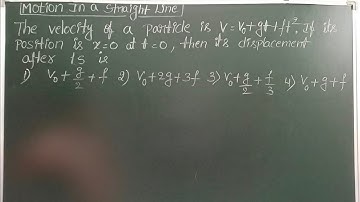 Motion In a Straight Line
The velocity of a particle is V=V₀+gt+ft². If its
position is x=0 at t=0, then its displacement
after 1s is
1) V₀+g/2+f 2) V₀+2g+3f 3) V₀+g/2+f/3 4) V₀+g+f